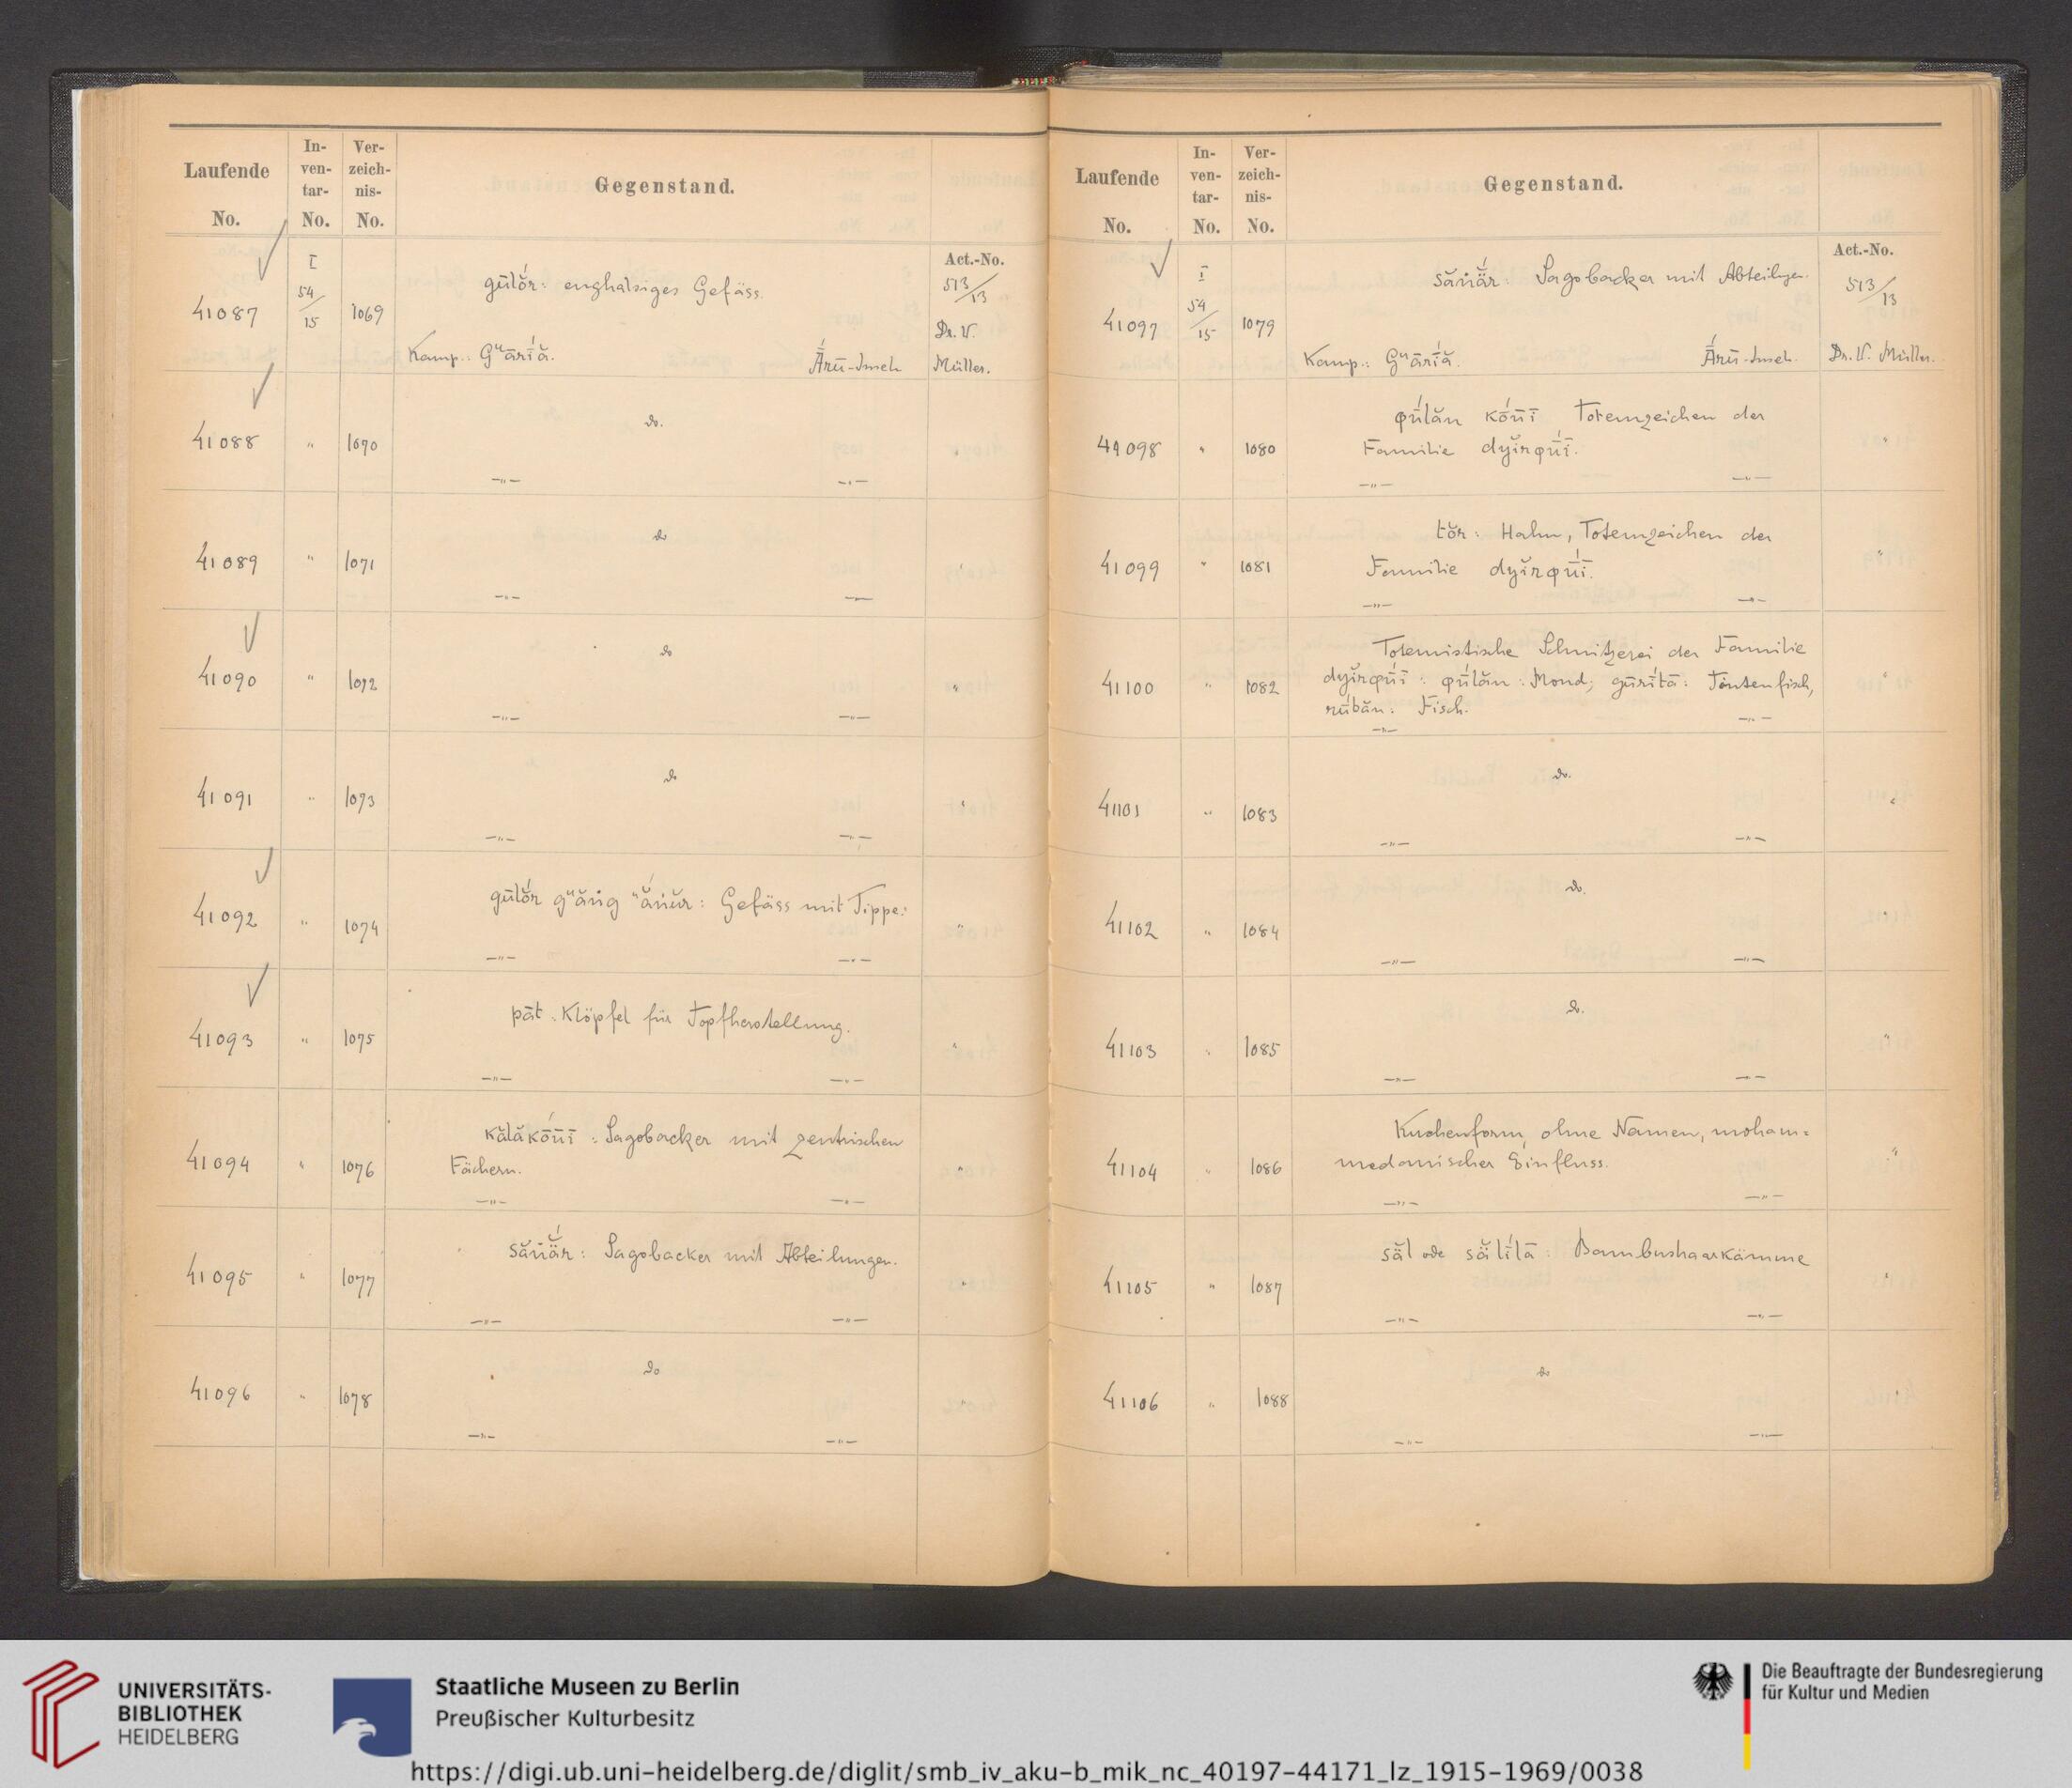 Laufende No. In-ven-tar-No. Ver-zeich-nis-No. Gegenstand.
Act.-No.
41087 I 54/15 1069 gūlŏ́r: enghalsiges Gefäss. 513/13
Kamp.: Gᵘārī́ă. Ā́rū-Inseln Dr. W. Müller.
41088 " 1070 do. "
—"— —"—
41089 " 1071 do "
—"— —"—
41090 " 1072 do "
—"— —"—
41091 " 1073 do "
—"— —"—
41092 " 1074 : Gefäss mit "
—"— —"—
41093 " 1075 pāt: Klöpfel für Topfherstellung. "
—"— —"—
41094 " 1076 kălăkṓnī: Sagobacker mit zentrischen
Fächern. "
—"— —"—
41095 " 1077 : Sagobacker mit Abteilungen. "
—"— —"—
41096 " 1078 do "
—"— —"—
Laufende No. In-ven-tar-No. Ver-zeich-nis-No. Gegenstand.
Act.-No.
41097 I 54/15 1079 : Sagobacker mit Abteilungen. 513/13
Kamp.: Gᵘārī́ă. Ā́rū-Inseln. Dr. W. Müller.
41098 " 1080 φū́lăn kṓnī Totemzeichen der
Familie dyĭrφū́ī. "
—"— —"—
41099 " 1081 tŏr: Hahn, Totemzeichen der
Familie dyĭrφū́ī. "
—"— —"—
41100 " 1082 Totemistische Schnitzerei der Familie
dyĭrφū́ī: φū́lăn: Mond; gūrī́tā: Tintenfisch,
rū́băn: Fisch. "
—"— —"—
41101 " 1083 do. "
—"— —"—
41102 " 1084 do. "
—"— —"—
41103 " 1085 do. "
—"— —"—
41104 " 1086 Kuchenform, ohne Namen, moham=
medanischer Einfluss. "
—"— —"—
41105 " 1087 săl ode sălī́lā: Bambushaarkämme "
—"— —"—
41106 " 1088 do "
—"— —"—
UNIVERSITÄTS-
BIBLIOTHEK
HEIDELBERG
Staatliche Museen zu Berlin
Preußischer Kulturbesitz
Die Beauftragte der Bundesregierung
für Kultur und Medien
https://digi.ub.uni-heidelberg.de/diglit/smb_iv_aku-b_mik_nc_40197-44171_lz_1915-1969/0038